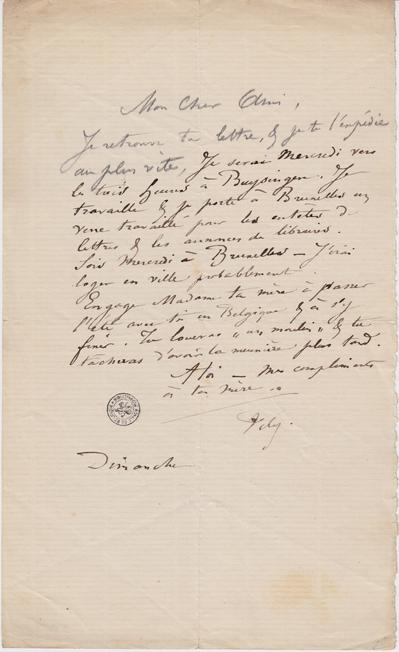 Mon Cher Ami,
Je retrouve ta lettre, & je te l'expédie
au plus vite, Je serai Mercredi vers
les trois heures à Buysingen. Je
travaille & je porte à Bruxelles un
verre travaillé pour les entêtes de
lettres & les annonces de libraires.
Sois Mercredi à Bruxelles — J'irai
loger en ville probablement.
Engage Madame ta mère à passer
l'été avec toi en Belgique & à s'y
fixer. Tu loueras "un moulin" & tu
tacheras d'avoir la meunière plus tard.
A toi — Mes compliments
à ta mère.
Dimanche